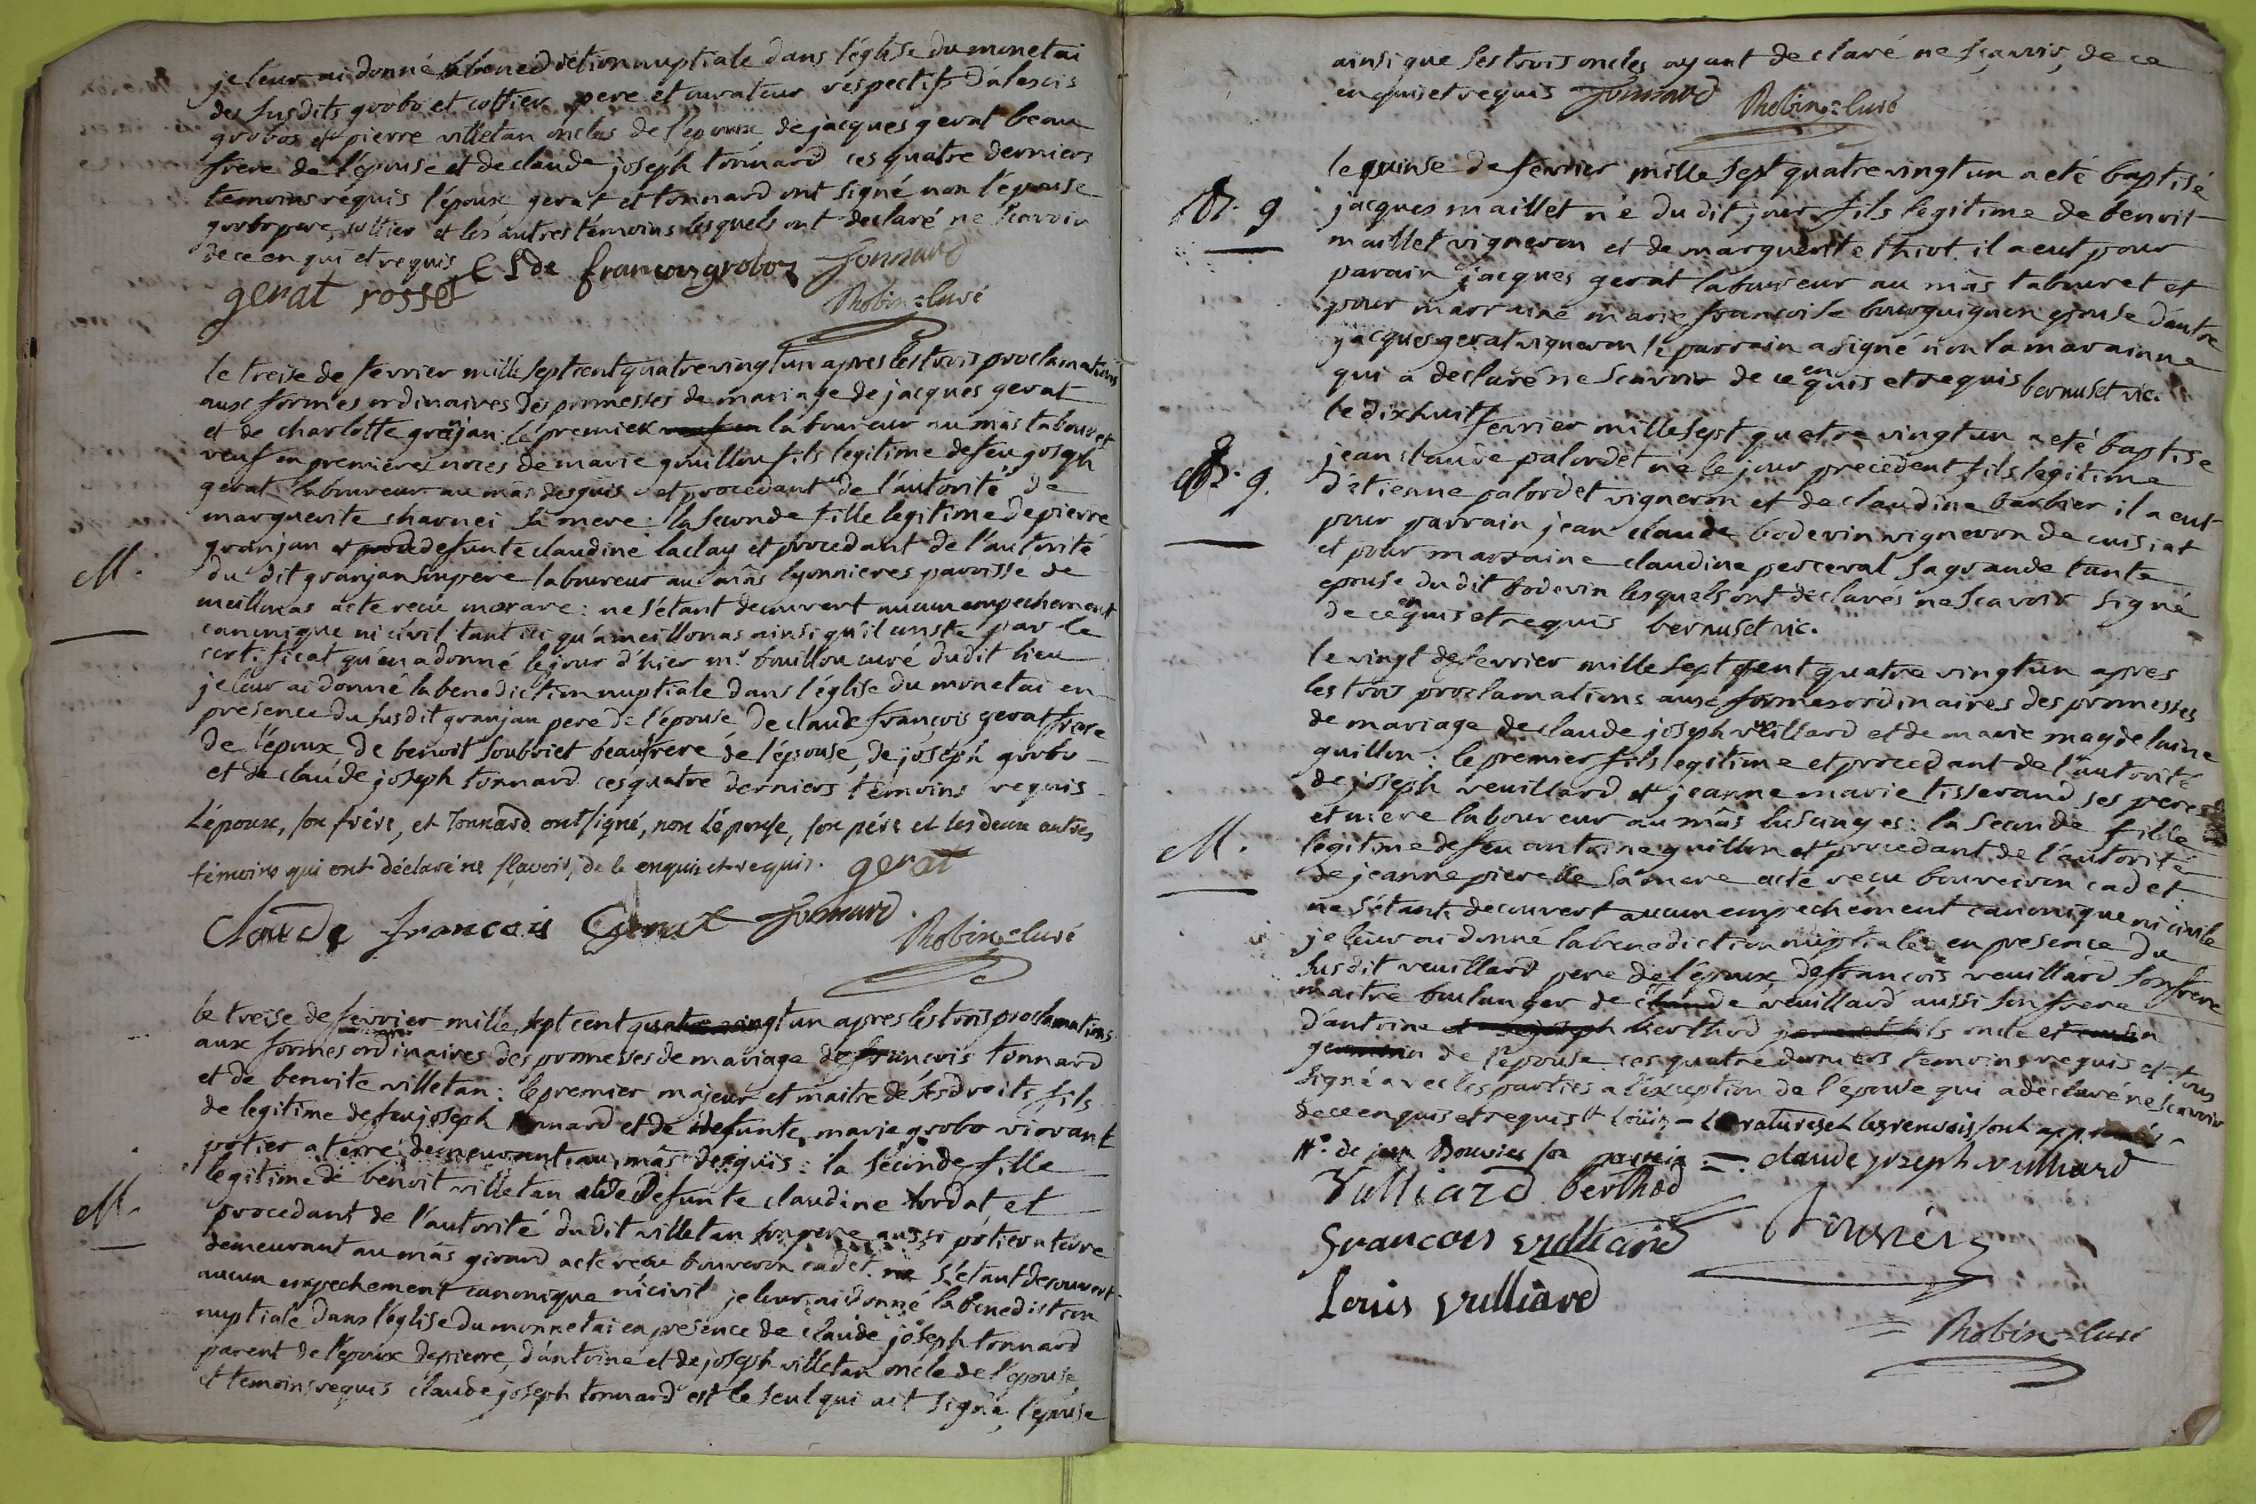 je leur ai donné la benediction nuptiale dans l'église du monetai
des susdits grobo et cottier pere et curateur respectifs d'alexis
grobos et pierre villetan oncles de l'epoux, de jacques gerat beau
frere de l'épouse et de claude joseph tonnard ces quatre derniers
temoins requis l'époux gerat et tonnard ont signé non l'épouse
grobo pere, cottier et les autres témoins lesquels ont declaré ne scavoir
de ce enqui et requis Cl de francois groboz Jonnard
gerat rosset
Robin = curé
le treise de fevrier mille sept cent quatre vingt un apres les trois proclamations
aux formes ordinaires des promesses de mariage de jacques gerat
et de charlotte granjan: le premier laboureur au mâs tabouret
veuf en premieres noces de marie guillon fils legitime de feu joseph
gerat laboureur au mâs desguis et procedant de l'autorité de
marguerite charnei sa mere: la seconde fille legitime de pierre
granjan et de defunte claudine laclay et procedant de l'autorité
du dit granjan son pere laboureur au mâs lyonnieres paroisse de
meillonas acte recu morare: ne s'étant decouvert aucun empechement
canonique ni civil tant ici qu'a meillonas ainsi qu'il conste par le
certificat qu'en a donné le jour d'hier mr bouillou curé dudit lieu
je leur ai donné la benediction nuptiale dans l'église du monetai en
présence du susdit granjan pere de l'épouse, de claude françois gerat frere
de l'époux de benoit soubriet beaufrere de l'épouse, de joseph grobo
et de claude joseph tonnard ces quatre derniers témoins requis
L'époux, son frére, et Tonnard ont signé, non l'épouse, son pére et les deux autres
témoins qui ont déclaré ne sçavoir, de ce enquis et requis. gerat
Claude francois Gerat Jonnard.
Robin = curé
M.
le treise de fevrier mille sept cent quatre vingt un apres les trois proclamations
aux formes ordinaires des promesses de mariage de françois tonnard
et de benoite villetan: le premier majeur et maitre de ses droits fils
de legitime de feu joseph tonnard et de defunte marie grobo vivant
potier a terre demeurant au mâs desguis: la seconde fille
legitime de benoit villetan et de defunte claudine tordat et
procedant de l'autorité du dit villetan son pere aussi potier a terre
demeurant au mâs girard acte recu bouveron cadet. ne s'étant decouvert
aucun empechement canonique ni civil je leur ai donné la benediction
nuptiale dans l'église du monnetai en présence de claude joseph tonnard
parent de l'époux de pierre, d'antoine et de joseph villetan oncle de l'épouse
et temoins requis claude joseph tonnard est le seul qui ait signé, l'épouse
M.
ainsi que les trois oncles ayant declaré ne sçavoir, de ce
enquis et requis Jonnard Robin = curé
le quinse de fevrier mille sept quatre vingt un a eté baptisé
jacques maillet né du dit jour fils legitime de benoit
maillet vigneron et de marguerite thiot. il a eut pour
parain jacques gerat laboureur au mâs tabouret et
pour marraine marie françoise bourguignon epouse d'autre
jacques gerat vigneron le parrain a signé non la maraine
qui a declaré ne scavoir de ce enquis et requis bernuset vic.
B. g
le dixhuit fevrier mille sept quatre vingt un a eté baptisé
jean claude palordet né le jour precedent fils legitime
d'etienne palordet vigneron et de claudine barbier il a eut
pour parrain jean claude bodevin vigneron de cuisiat
et pour marraine claudine perceval sa grande tante
epouse du dit bodevin lesquels ont declarés ne scavoir signé
de ce enquis et requis bernuset vic.
B. g.
le vingt de fevrier mille sept cent quatre vingt un apres
les trois proclamations aux formes ordinaires des promesses
de mariage de claude joseph veillard et de marie magdelaine
guillon: le premier fils legitime et procedant de l'autorité
de joseph veuillard et jeanne marie tisserand ses peres
et mere laboureur au mâs lusinges: la seconde fille
legitime de feu antoine guillon et procedant de l'autorité
de jeanne pierelle sa mere acte reçu bouveiron cadet:
ne s'étant decouvert aucun empechement canonique ni civile
je leur ai donné la benediction nuptiale en presence du
susdit veuillard pere de l'époux, de françois veuillard son frere
maitre boulanger de veuillard aussi son frere
d'antoine berthod oncle
de l'épouse. ces quatre derniers temoins requis et tous
signé avec les parties a l'exception de l'épouse qui a declaré ne scavoir
de ce enquis et requis # Loüis - Les ratures et les renvois sont approuvés
#. de jean Bouvier son parrein =. claude joseph vulliard
Vulliard berthod
francois vulliard Bouvier
Louis vulliard
Robin = curé
M.